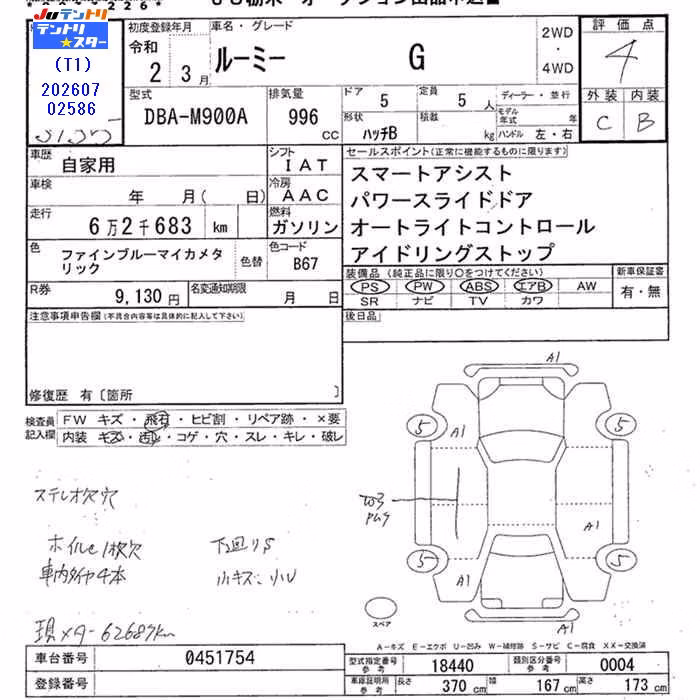 JUテントリ
テントリ★スター
(T1)
202607
02586
初度登録年月
令和
2 3月
車名・グレード
ルーミー G
2WD
・
4WD
評価点
4
型式
DBA-M900A
排気量
996
CC
ドア
5
定員
5 人
ディーラー・並行
モデル年式 年
形状
ハッチB
積載
kg
ハンドル 左・右
外装 内装
C B
車歴
自家用
シフト
IAT
車検
年 月( 日)
冷房
AAC
走行
6万2千683 km
燃料
ガソリン
セールスポイント(正常に機能するものに限ります)
スマートアシスト
パワースライドドア
オートライトコントロール
アイドリングストップ
色
ファインブルーマイカメタリック
色替
色コード
B67
装備品(純正品に限り○をつけてください)
PS PW ABS エアB AW
SR ナビ TV カワ
新車保証書
有・無
R券
9,130 円
名変通知期限
月 日
注意事項申告欄(不具合内容等は具体的に記入して下さい)
後日品
修復歴 有〔箇所 〕
検査員記入欄
FW キズ・飛石・ヒビ割・リペア跡・×要
内装 キズ・汚レ・コゲ・穴・スレ・キレ・破レ
A1
5 A1 5
ステレオ欠穴
A1
ホイルc1枚欠 下回りS
車内タイヤ4本 小キズ、小U
5 A1 5
現メター62687km
スペア
A1
A-キズ E-エクボ U-凹み W-補修跡 S-サビ C-腐食 XX-交換済
車台番号 0451754
型式指定番号 参考 18440
類別区分番号 参考 0004
登録番号
車庫証明用 参考
長さ 370 cm
幅 167 cm
高さ 173 cm